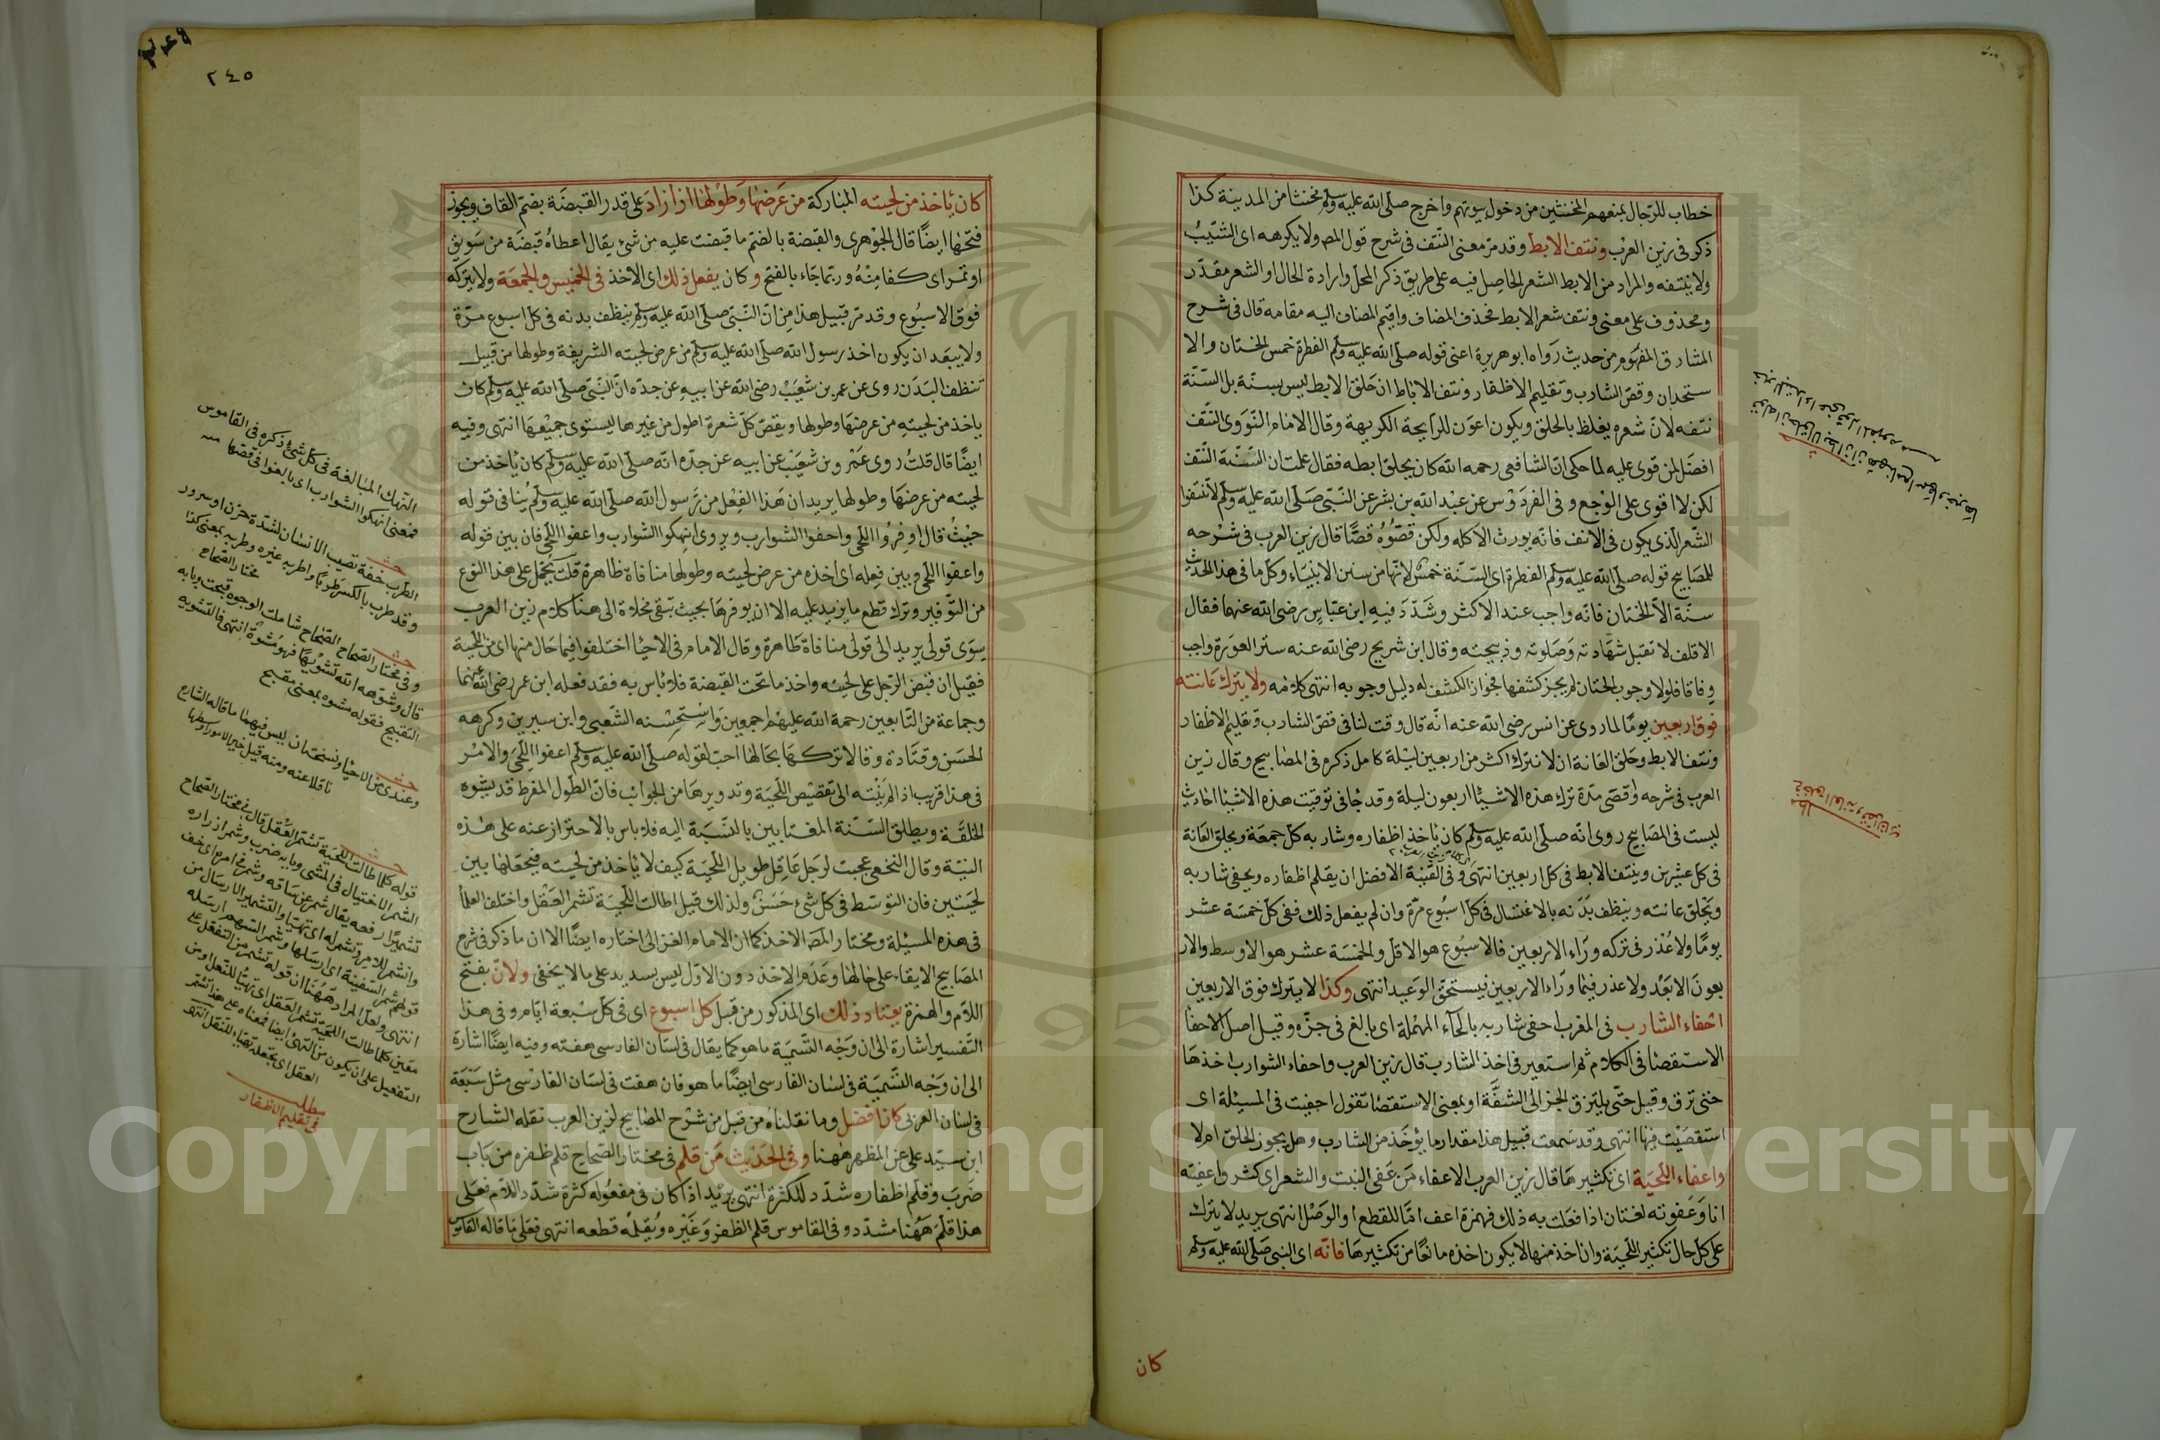 خطاب للرجال بمنعهم المخنثين من دخول بيوتهم واخرج صلى الله عليه وسلم مخنثا من المدينة كذا
ذكر فى زين العرب ونتف الابط وقد مر معنى النتف فى شرح قول المص ولا يكرهه اى الشيب
ولا ينتفه والمراد من الابط الشعر الحاصل فيه على طريق ذكر المحل وارادة الحال او الشعر مقدر
ومحذوف على معنى ونتف شعر الابط فحذف المضاف واقيم المضاف اليه مقامه قال فى شرح
المشارق المفهوم من حديث رواه ابو هريرة اعنى قوله صلى الله عليه وسلم الفطرة خمس الختان والا
ستحداد وقص الشارب وتقليم الاظفار ونتف الاباط ان حلق الابط ليس بسنة بل السنة
نتفه لان شعره يغلظ بالحلق ويكون اعون للرايحة الكريهة وقال الامام النووى النتف
افضل لمن قوى عليه لما حكى ان الشافعى رحمه الله كان يحلق ابطه فقال علمت ان السنة النتف
لكن لا اقوى على الوجع وفى الفردوس عن عبد الله بن بشر عن النبى صلى الله عليه وسلم لا تنتفوا
الشعر الذى يكون فى الانف فانه يورث الاكله ولكن قصوه قصا قال زين العرب فى شرحه
للمصابيح قوله صلى الله عليه وسلم الفطرة اى السنة خمس لانها من سنن الانبياء وكل ما فى هذا الحديث
سنة الا الختان فانه واجب عند الاكثر وشدد فيه ابن عباس رضى الله عنهما فقال
الاقلف لا تقبل شهادته وصلوته وذبيحته وقال ابن شريح رضى الله عنه ستر العورة واجب
وفاقا فلولا وجوب الختان لم يجز كشفها فجواز الكشف له دليل وجوبه انتهى كلامه ولا يترك عانته
فوق اربعين يوما لما روى عن انس رضى الله عنه انه قال وقت لنا فى قص الشارب وتقليم الاظفار
ونتف الابط وحلق العانة ان لا نترك اكثر من اربعين ليلة كامل ذكره فى المصابيح وقال زين
العرب فى شرحه واقصى مدة ترك هذه الاشيا اربعون ليلة وقد جا فى توقيت هذه الاشيا احاديث
ليست فى المصابيح روى انه صلى الله عليه وسلم كان ياخذ اظفاره وشاربه كل جمعة ويحلق العانة
فى كل عشرين وينتف الابط فى كل اربعين انتهى وفى القنية الافضل ان يقلم اظفاره ويحفى شاربه
ويحلق عانته وينظف بدنه بالاغتسال فى كل اسبوع مرة وان لم يفعل ذلك ففى كل خمسة عشر
يوما ولا عذر فى تركه وراء الاربعين فالاسبوع هو الاقل والخمسة عشر هو الاوسط والار
بعون الابعد ولا عذر فيما وراء الاربعين فيستحق الوعيد انتهى وكذا لا يترك فوق الاربعين
احفاء الشارب فى المغرب احفى شاربه بالحاء المهملة اى بالغ فى جزه وقيل اصل الاحفا
الاستقصا فى الكلام ثم استعير فى اخذ الشارب قال زين العرب واحفاء الشوارب اخذها
حتى ترق وقيل حتى يلتزق الجز الى الشفة او بمعنى الاستقصا تقول احفيت فى المسيلة اى
استقصيت فيها انتهى وقد سمعت قبيل هذا مقدار ما يؤخذ من الشارب وهل يجوز الحلق ام لا
واعفاء اللحية اى تكثيرها قال زين العرب الاعفاء من عفى النبت والشعر اى كثر واعفيته
انا وعفوته لغتان اذا فعلت به ذلك فهمزة اعف اما للقطع او الوصل انتهى يريد لا يترك
على كل حال تكثير اللحية وان اخذ منها لا يكون اخذه مانعا من تكثيرها فانه اى النبى صلى الله عليه وسلم
كان
٢٤٥
كان ياخذ من لحيته المباركة من عرضها وطولها اذا زاد على قدر القبضة بضم القاف ويجوز
فتحها ايضا قال الجوهرى والقبضة بالضم ما قبضت عليه من شئ يقال اعطاه قبضة من سويق
او تمر اى كفا منه وربما جاء بالفتح وكان يفعل ذلك اى الاخذ فى الخميس والجمعة ولا يتركه
فوق الاسبوع وقد مر قبيل هذا من ان النبى صلى الله عليه وسلم ينظف بدنه فى كل اسبوع مرة
ولا يبعد ان يكون اخذ رسول الله صلى الله عليه وسلم من عرض لحيته الشريفة وطولها من قبيل
تنظف البدن روى عن عمر بن شعيب رضى الله عن ابيه عن جده ان النبى صلى الله عليه وسلم كان
ياخذ من لحيته من عرضها وطولها ويقص كل شعرة اطول من غيرها ليستوى جميعها انتهى وفيه
ايضا قال قلت روى عمرو بن شعيب عن ابيه عن جده انه صلى الله عليه وسلم كان ياخذ من
لحيته من عرضها وطولها يريد ان هذا الفعل من رسول الله صلى الله عليه وسلم ينافى قوله
حيث قال اوفروا اللحى واحفوا الشوارب ويروى انهكوا الشوارب واعفوا اللحى فان بين قوله
واعفوا اللحى وبين فعله اى اخذه من عرض لحيته وطولها منافاة ظاهرة قلت يحمل على هذا النوع
من التوفير وترك قطع ما يزيد عليه الا ان يوفرها بحيث تبقى مخلاة الى هنا كلام زين العرب
سوى قولى يريد الى قولى منافاة ظاهرة وقال الامام فى الاحيا اختلفوا فيما حال منها اى من اللحية
فقيل ان قبض الرجل على لحيته واخذ ما تحت القبضة فلا باس به فقد فعله ابن عمر رضى الله عنهما
وجماعة من التابعين رحمة الله عليهم اجمعين واستحسنه الشعبى وابن سيرين وكرهه
الحسن وقتادة وقالا تركها بحالها احب لقوله صلى الله عليه وسلم اعفوا اللحى والامر
فى هذا قريب اذ لم ينته الى تقصيص اللحية وتدويرها من الجوانب فان الطول المفرط قد يشوه
الخلقة ويطلق السنة المغتابين بالنسبة اليه فلا باس بالاحتراز عنه على هذه
النية وقال النخعى عجبت لرجل عاقل طويل اللحية كيف لا ياخذ من لحيته فيجعلها بين
لحيتين فان التوسط فى كل شئ حسن ولذلك قيل اطالت اللحية تشمر العقل واختلف العلما
فى هذه المسيلة ومختار المص الاخذ كما ان الامام الغزالى اختاره ايضا الا ان ما ذكر فى شرح
المصابيح الابقاء على حالها وعدم الاخذ دون الاول ليس بسديد على ما لا يخفى ولان بفتح
اللام والهمزة يعتاد ذلك اى المذكور من قبل كل اسبوع اى فى كل سبعة ايام وفى هذا
التفسير اشارة الى ان وجه التسمية ما هو كما يقال فى لسان الفارسى هفته وفيه ايضا اشارة
الى ان وجه التسمية فى لسان الفارسى ايضا ما هو فان هفت فى لسان الفارسى مثل سبعة
فى لسان العربى كان افضل وما نقلناه من قبل من شرح المصابيح لزين العرب نقله الشارح
ابن سيد على عن المظهر ههنا وفى الحديث من قلم فى مختار الصحاح قلم ظفره من باب
ضرب وقلم اظفاره شدد للكثرة انتهى يريد اذا كان فى مفعوله كثرة شدد اللام فعلى
هذا قلم ههنا مشدد وفى القاموس قلم الظفر وغيره ويقلمه قطعه انتهى فعلى ما قاله القاموس
النهك المبالغة فى كل شئ ذكره فى القاموس
فمعنى انهكوا الشوارب اى بالغوا فى قصها
الطرب خفة تصيب الانسان لشدة حزن او سرور
وقد طرب بالكسر طربا واطربه غيره وطربه بمعنى كذا
مختار الصحاح
وفى مختار الصحاح شاهت الوجوه قبحت وبابه
قال وشوهه الله تشويها فهو مشوه انتهى فالتشويه
التقبيح فقوله مشوه بمعنى مقبح
ناقلا عنه ومنه قيل خير الامور اوسطها
قوله كلما طالت اللحية تشمر العقل قال فى مختار الصحاح
مطلب
فى تقليم الاظفار
Copyright © King Saud University